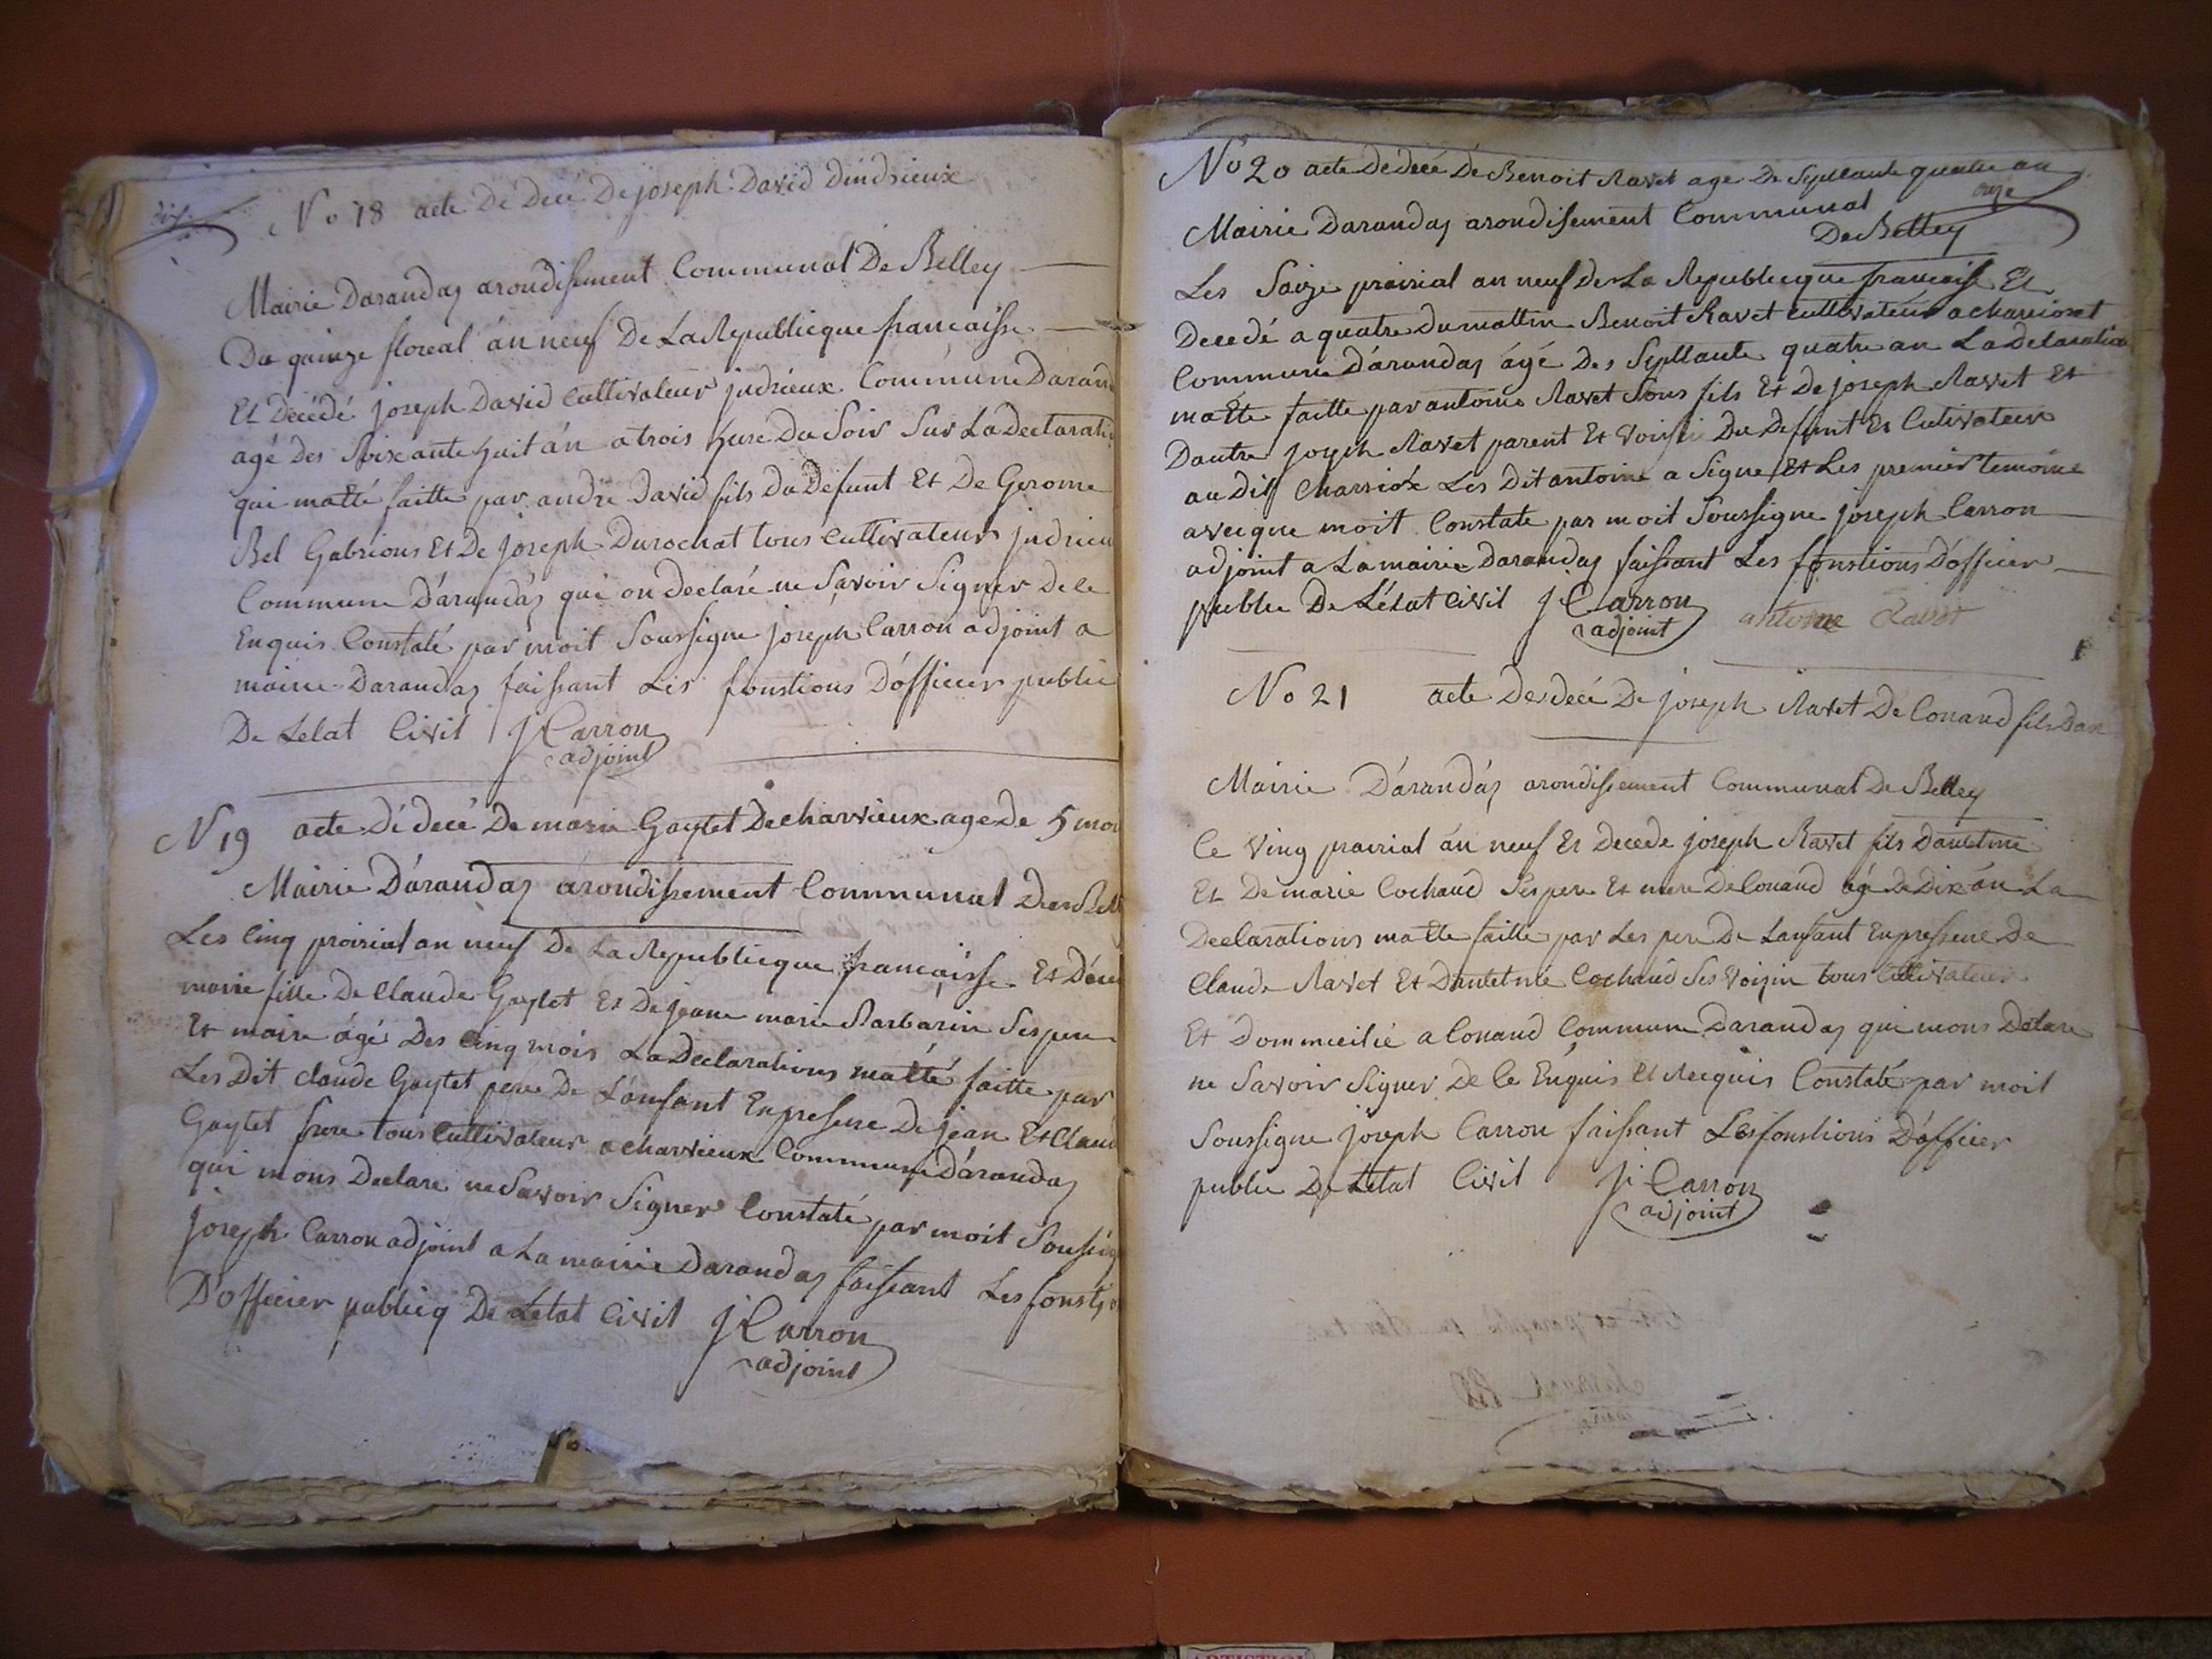 dix
No 18 acte De Decé De joseph David Dindrieux
Mairie Darandas arondisement Communal De Belley
Du quinze floreal án neuf De La Republicque francaisse
Et Decédé joseph David Cultivateur judrieux Commune Daran
agé Des Soixante huit án a trois hure Du Soir Sur La Declarati
qui matté faitte par andre David fils du Defunt Et De Gerome
Bel Gabrious Et De joseph Durochat tous Cultivateurs judrieu
Commune Dárandás qui on Declaré ne Savoir Signer De ce
Enquis Constaté par moit Soussigne joseph Carron adjoint a
mairie Darandas faissant Les fonstions D'officier public
De Letat Civil J Carron
adjoint
N 19 acte De decé De marie Gaytet De charvieux age de 5 moi
Mairie Dárandas árondissement Communal De Bell
Les Cinq prairial an neuf De La Republicque francaisse Et Déce
marie fille De Claude Gaytet Et De jeane marie Barbarin Ses pere
Et maire ágé Des Cinq mois La Declarations matté faitte par
Les Dit claude Gaytet pere De L'anfant En presene De jean Et Claud
Gaytet frere tous Cultivateur a charvieux Commune Dárandas
qui mons Declare ne Savoir Signer Constaté par moit Soussig
joseph Carron adjoint a La mairie Darandas faissant Les fonstio
D'officier publicq De Letat Civil J Carron
adjoint
No 20 acte De decé De Benoit Ravet age De Septante quatre an
onze
Mairie Darandas arondisement Communal
De Belley
Les Saize prairial an neuf De La Republicque francaisse Et
Decedé a quatre du mattin Benoit Ravet Cultivateur a
Commune D'árandas ágé Des Septtante quatre an La Declaration
matte faitte par antoine Ravet Sons fils Et De joseph Ravet Et
Dautre joseph Ravet parent Et voisin Du Defunt Et Cutivateur
au Dit Les Dit antoine a Signe Et Les premier temoins
avecque moit Constate par moit Soussigne joseph Carron
adjoint a La mairie Darandas faissant Les fonstions D'officier
public De L'état Civil J Carron antoine Ravet
adjoint
No 21 acte De decé De joseph Ravet De Conand fils Dan
Mairie D'árandás arondissement Communal De Belley
Ce ving prairial án neuf Et Decede joseph Ravet fils Dantelme
Et De marie Cochaud Ses pere Et mere De Conand agé De Dix án La
Declarations matte faitte par Les pere De Lanfant En pressene De
Claude Ravet Et D'antelme Cochaud Ses Voizin tous Cultivateur
Et Dommicilié a Conand Commune Darandas qui mons Delare
ne Savoir Signer De Ce Enquis Et Recquis Constaté par moit
Soussigne joseph Carron faissant Les fonstions D'officier
public De Letat Civil J Carron
adjoint